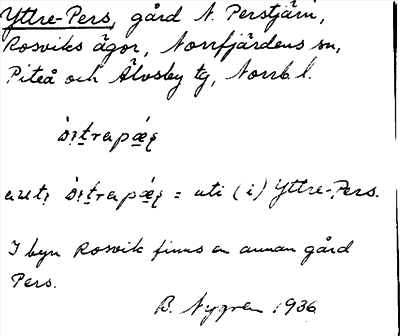 Yttre-Pers, gård N. Perstjärn,
Rosviks ägor, Norrfjärdens sn,
Piteå och Älvsby tg, Norrb. l.
= uti (i) Yttre-Pers.
I byn Rosvik finns en annan gård
Pers.
B. Nygren 1936